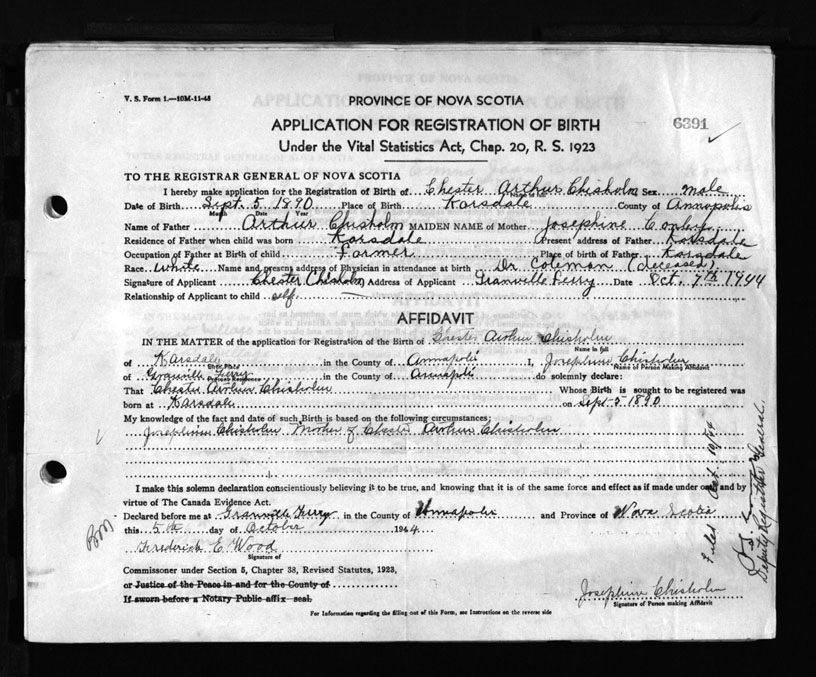 V. S. Form 1.—10M-11-43
PROVINCE OF NOVA SCOTIA
APPLICATION FOR REGISTRATION OF BIRTH
6391
Under the Vital Statistics Act, Chap. 20, R. S. 1923
TO THE REGISTRAR GENERAL OF NOVA SCOTIA
I hereby make application for the Registration of Birth of Chester Arthur Chisholm Sex male
Date of Birth Sept. 5 1890 Place of Birth Karsdale County of Annapolis
Month Date Year
Name of Father Arthur Chisholm MAIDEN NAME of Mother Josephine
Residence of Father when child was born Karsdale Present address of Father Karsdale
Occupation of Father at Birth of child Farmer Place of birth of Father Karsdale
Race White Name and present address of Physician in attendance at birth Dr Coleman (deceased)
Signature of Applicant Chester Chisholm Address of Applicant Granville Ferry Date Oct. 7th 1944
Relationship of Applicant to child self.
AFFIDAVIT
IN THE MATTER of the application for Registration of the Birth of Chester Arthur Chisholm
Name in full
of Karsdale in the County of Annapolis I, Josephine Chisholm
Birth Place Name of Person Making Affidavit
of Granville Ferry in the County of Annapolis do solemnly declare:
Present Residence
That Chester Arthur Chisholm Whose Birth is sought to be registered was
born at Karsdale on Sept 5 1890
My knowledge of the fact and date of such Birth is based on the following circumstances:
Josephine Chisholm Mother of Chester Arthur Chisholm
I make this solemn declaration conscientiously believing it to be true, and knowing that it is of the same force and effect as if made under oath and by
virtue of The Canada Evidence Act.
Declared before me at Granville Ferry in the County of Annapolis and Province of Nova Scotia
this 5th day of October 1944
Frederick E Wood
Signature of
Commissoner under Section 5, Chapter 38, Revised Statutes, 1923,
or Justice of the Peace in and for the County of
If sworn before a Notary Public affix seal.
Josephine Chisholm
Signature of Person making Affidavit
For Information regarding the filling out of this Form, see Instructions on the reverse side
Filed Oct. 10/44
Deputy Registrar General.